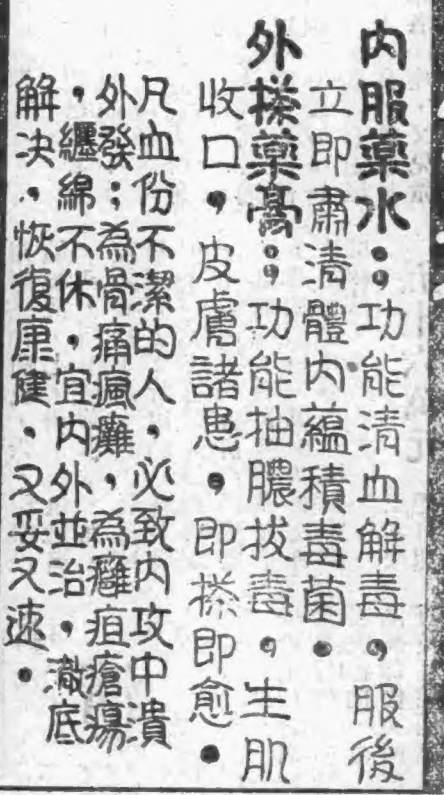 內服藥水：功能清血解毒，服後
立即肅清體内蘊積毒菌。
外搽藥膏：功能抽膿拔毒，生肌
收口，皮膚諸患，即搽即愈。
凡血份不潔的人，必致内攻中潰
外發；為骨痛瘋癱，為癰疽瘡瘍
，纏綿不休，宜内外並治，澈底
解决，恢復康健，又妥又速。